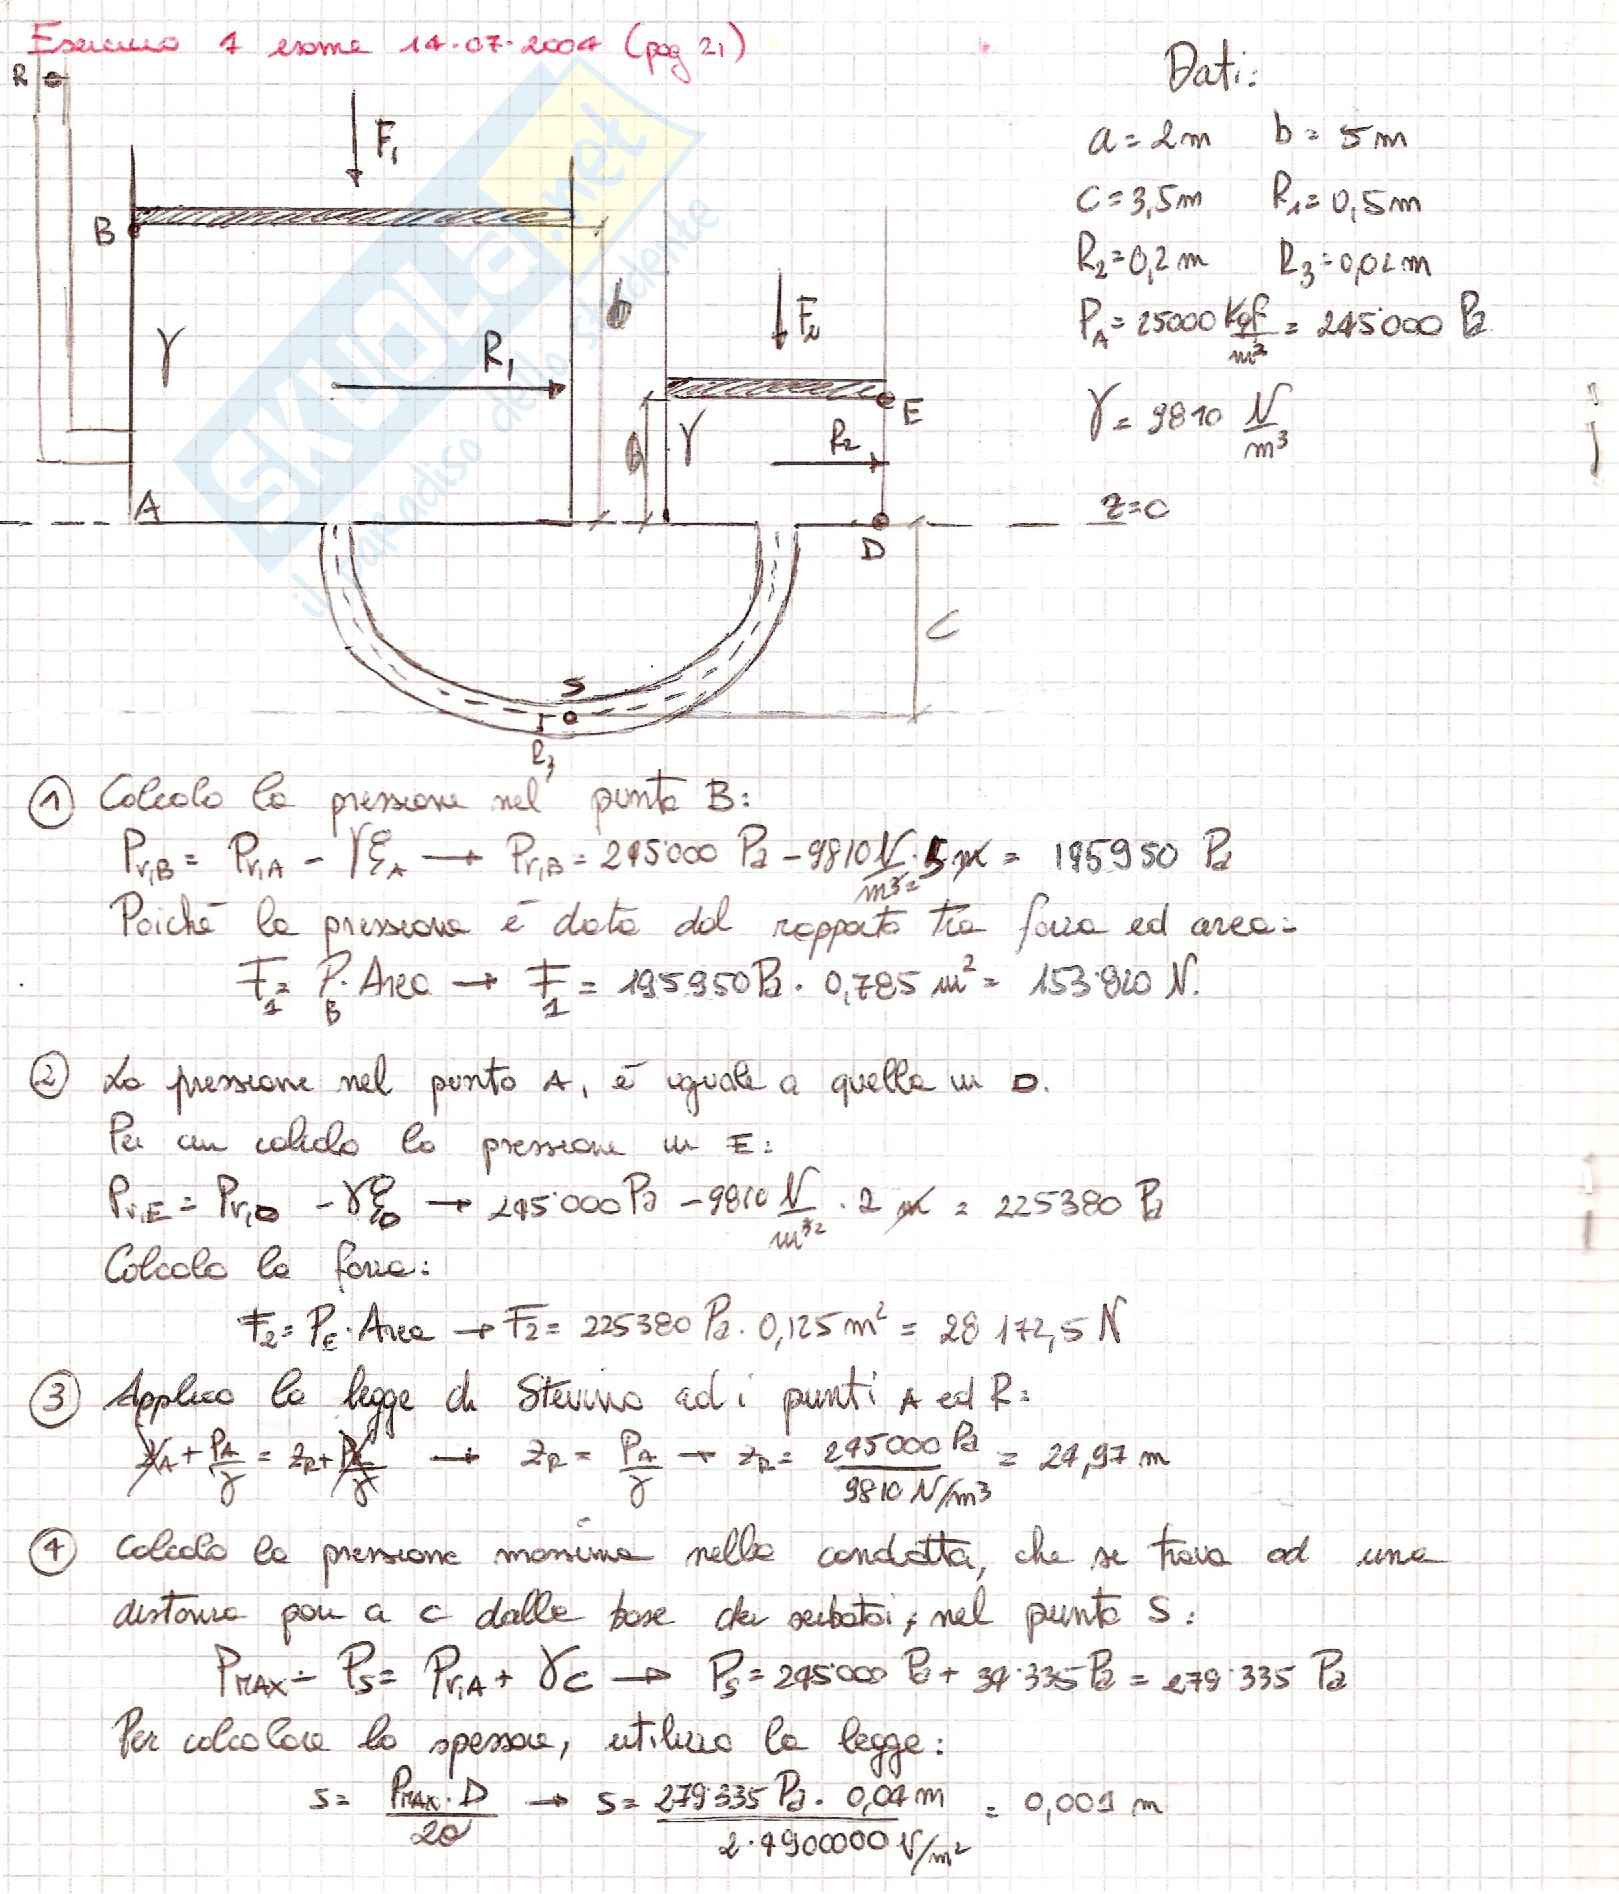 Esercizio 1 esame 14-07-2004 (pag 21)
R
F₁
B
γ
R₁
b
F₂
E
a
γ
R₂
A
D
c
S
R₃
Dati:
a = 2m b = 5m
c = 3,5m R₁ = 0,5m
R₂ = 0,2m R₃ = 0,02m
P_A = 25000 Kgf/m² = 245'000 Pa
γ = 9810 N/m³
z=0
SKUOLA.net
il paradiso dello studente
① Calcolo la pressione nel punto B:
P_r,B = P_r,A - γξ_A → P_r,B = 245'000 Pa - 9810 N/m³² · 5 m = 195950 Pa
Poiché la pressione è data dal rapporto tra forza ed area:
F₁ = P_B · Area → F₁ = 195950 Pa · 0,785 m² = 153'820 N.
② La pressione nel punto A, è uguale a quella in D.
Per cui calcolo la pressione in E:
P_r,E = P_r,D - γξ_D → 245'000 Pa - 9810 N/m³² · 2 m = 225380 Pa
Calcolo la forza:
F₂ = P_E · Area → F₂ = 225380 Pa · 0,125 m² = 28172,5 N
③ Applico la legge di Stevino ad i punti A ed R:
z_A + P_A/γ = z_R + P_R/γ → z_R = P_A/γ → z_R = 245000 Pa / 9810 N/m³ = 24,97 m
④ Calcolo la pressione massima nella condotta, che si trova ad una
distanza pari a c dalla base dei serbatoi, nel punto S:
P_MAX = P_S = P_r,A + γc → P_S = 245'000 Pa + 34'335 Pa = 279'335 Pa
Per calcolare lo spessore, utilizzo la legge:
s = P_MAX · D / 2σ → s = 279'335 Pa · 0,04 m / 2 · 4900000 N/m² = 0,001 m